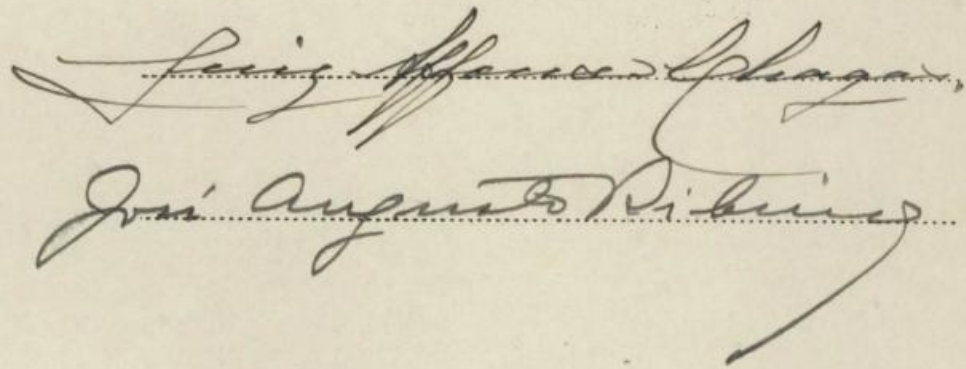 Luiz Affonso Chagas
José Augusto Ribeiro